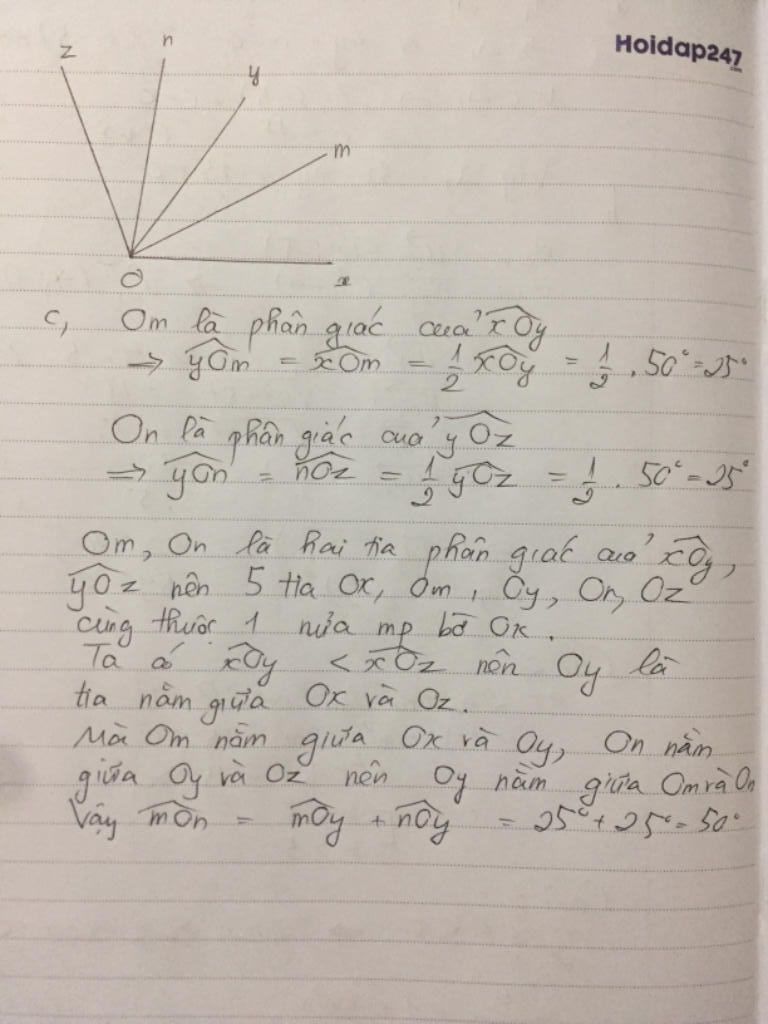 Hoidap247
.com
z
n
y
m
O
x
c, Om là phân giác của xOy
=> yOm = xOm = 1/2 xOy = 1/2 . 50° = 25°
On là phân giác của yOz
=> yOn = nOz = 1/2 yOz = 1/2 . 50° = 25°
Om, On là hai tia phân giác của xOy,
yOz nên 5 tia Ox, Om, Oy, On, Oz
cùng thuộc 1 nửa mp bờ Ox.
Ta có xOy < xOz nên Oy là
tia nằm giữa Ox và Oz.
Mà Om nằm giữa Ox và Oy, On nằm
giữa Oy và Oz nên Oy nằm giữa Om và On
Vậy mOn = mOy + nOy = 25° + 25° = 50°